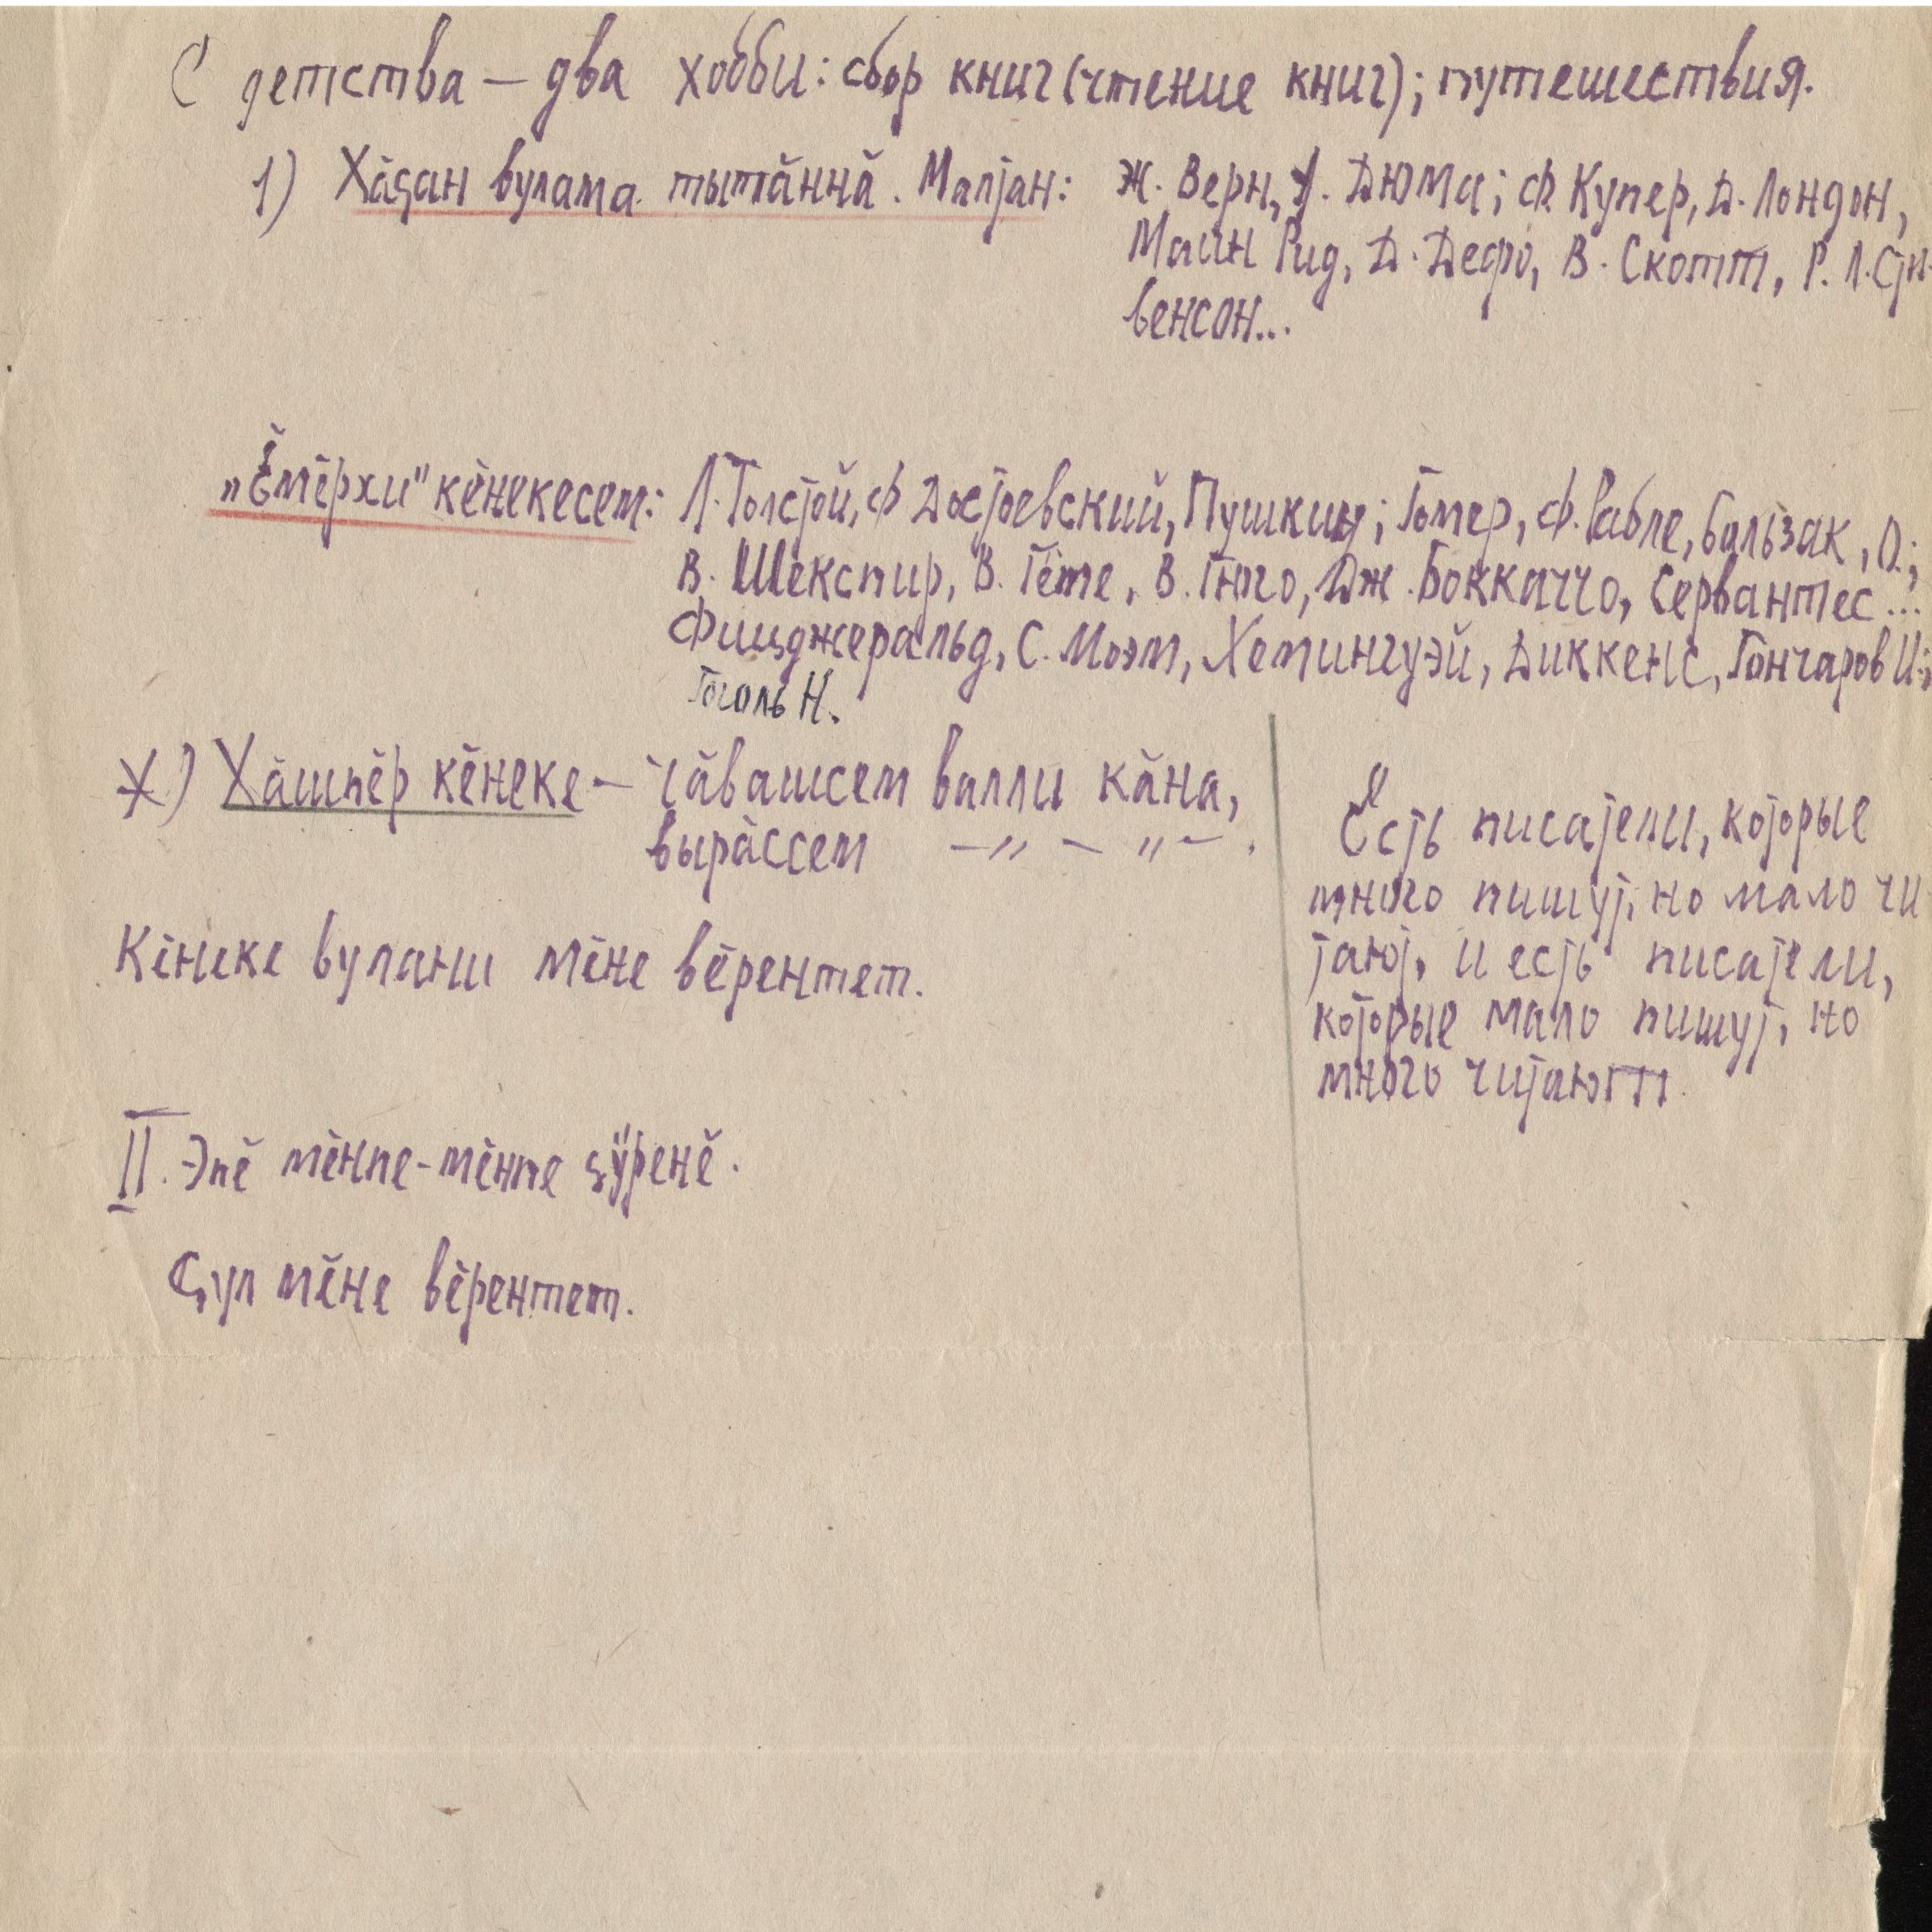 С детства – два хобби: сбор книг (чтение книг); путешествия.
1) Хăҫан вулама тытăннă. Малтан: Ж. Верн, А. Дюма; Ф. Купер, Д. Лондон,
Майн Рид, Д. Дефо, В. Скотт, Р. Л. Сти-
венсон...
„Ĕмĕрхи" кĕнекесем: Л. Толстой, Ф Достоевский, Пушкин; Гомер, Ф. Рабле, Бальзак, О.;
В. Шекспир, В. Гёте, В. Гюго, Дж. Боккаччо, Сервантес...
Фицджеральд, С. Моэм, Хемингуэй, Диккенс, Гончаров И.;
Гоголь Н.
*) Хăшпĕр кĕнеке – чăвашсем валли кăна,
вырăссем –〃–〃–.
Кĕнеке вулани мĕне вĕрентет.
II. Эпĕ мĕнпе-мĕнпе ҫӳренĕ.
Ҫул мĕне вĕрентет.
Есть писатели, которые
много пишут, но мало чи
тают, и есть писатели,
которые мало пишут, но
много читают.